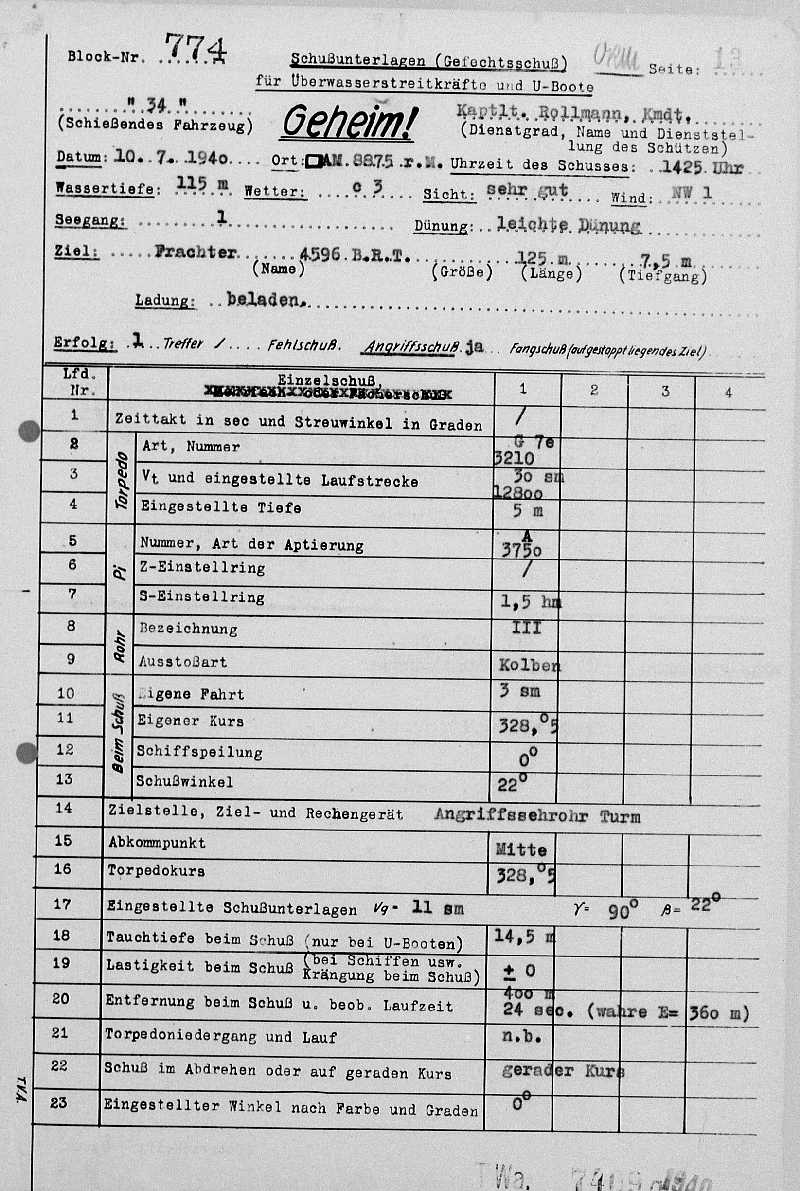 Block-Nr. 774
Schußunterlagen (Gefechtsschuß)
Seite: 13
für Überwasserstreitkräfte und U-Boote
" 34 "
(Schießendes Fahrzeug)
Geheim!
Kaptlt. Rollmann, Kmdt.
(Dienstgrad, Name und Dienststel-
lung des Schützen)
Datum: 10. 7. 1940 Ort: □AM. 8875 r.M. Uhrzeit des Schusses: 1425 Uhr
Wassertiefe: 115 m Wetter: c 3 Sicht: sehr gut Wind: NW 1
Seegang: 1 Dünung: leichte Dünung
Ziel: Frachter 4596 B.R.T. 125 m 7,5 m
(Name) (Größe) (Länge) (Tiefgang)
Ladung: beladen.
Erfolg: 1 Treffer / Fehlschuß. Angriffsschuß. ja Fangschuß (auf gestoppt liegendes Ziel)
Lfd. Nr. Einzelschuß, 1 2 3 4
1 Zeittakt in sec und Streuwinkel in Graden /
Torpedo
2 Art, Nummer G 7e 3210
3 Vt und eingestellte Laufstrecke 30 sm 12800
4 Eingestellte Tiefe 5 m
Pi
5 Nummer, Art der Aptierung A 3750
6 Z-Einstellring /
7 S-Einstellring 1,5 hm
Rohr
8 Bezeichnung III
9 Ausstoßart Kolben
Beim Schuß
10 Eigene Fahrt 3 sm
11 Eigener Kurs 328,°5
12 Schiffspeilung 0°
13 Schußwinkel 22°
14 Zielstelle, Ziel- und Rechengerät Angriffssehrohr Turm
15 Abkommpunkt Mitte
16 Torpedokurs 328,°5
17 Eingestellte Schußunterlagen Vg= 11 sm γ= 90° β= 22°
18 Tauchtiefe beim Schuß (nur bei U-Booten) 14,5 m
19 Lastigkeit beim Schuß (bei Schiffen usw. Krängung beim Schuß) ± 0
20 Entfernung beim Schuß u. beob. Laufzeit 400 m 24 sec. (wahre E= 360 m)
21 Torpedoniedergang und Lauf n.b.
22 Schuß im Abdrehen oder auf geraden Kurs gerader Kurs
23 Eingestellter Winkel nach Farbe und Graden 0°
TVA
TWa. 1940